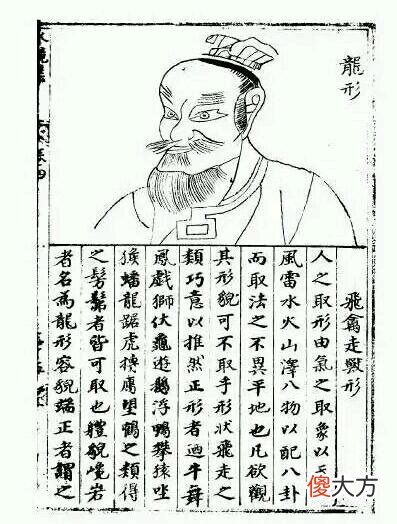 龍形
飛禽走獸形
人之取形由氣之取象以
風雷水火山澤八物以配八卦
而取法之不異乎地也凡欲觀
其形貌可不取乎形狀飛走之
類巧意以推然正形者過牛舞
鳳戲獅伏龜遊鵝浮鴨攀猿坐
猴蟠龍踞虎摶鷹望鶴之類得
之髣髴者皆可取也體貌巉岩
者名為龍形容貌端正者謂之
水鏡集
卷四
傻大方